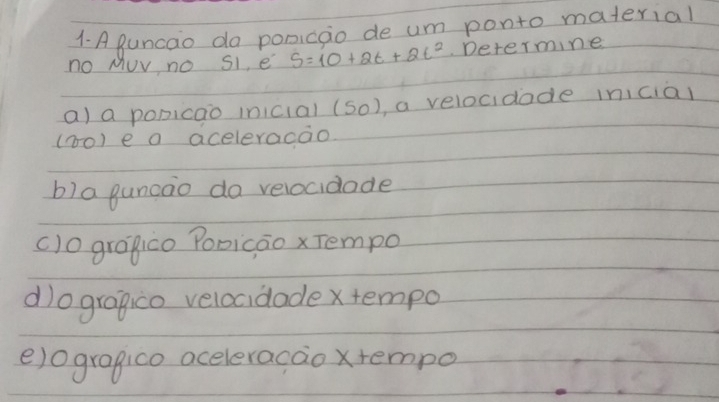 1. A função da posição de um ponto material
no MUV, no SI, é S=10+2t+2t². Determine
a) a posição inicial (S0), a velocidade inicial
(v0) e a aceleração.
b) a função da velocidade
c) o gráfico Posição x Tempo
d) o gráfico velocidade x tempo
e) o grafico aceleração x tempo